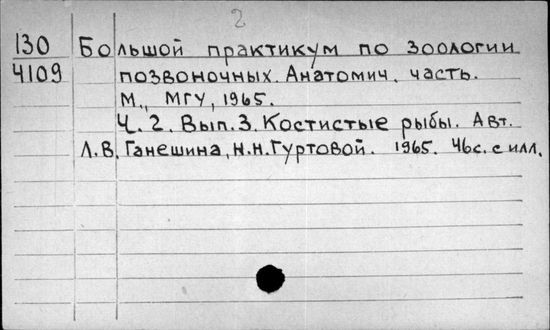 2
130 Большой практикум по зоологии
4109 позвоночных. Анатомич. часть.
М., МГУ, 1965.
Ч. 2. Вып. 3. Костистые рыбы. Авт.
Л.В. Ганешина, Н.Н. Гуртовой. 1965. 46с. с илл.